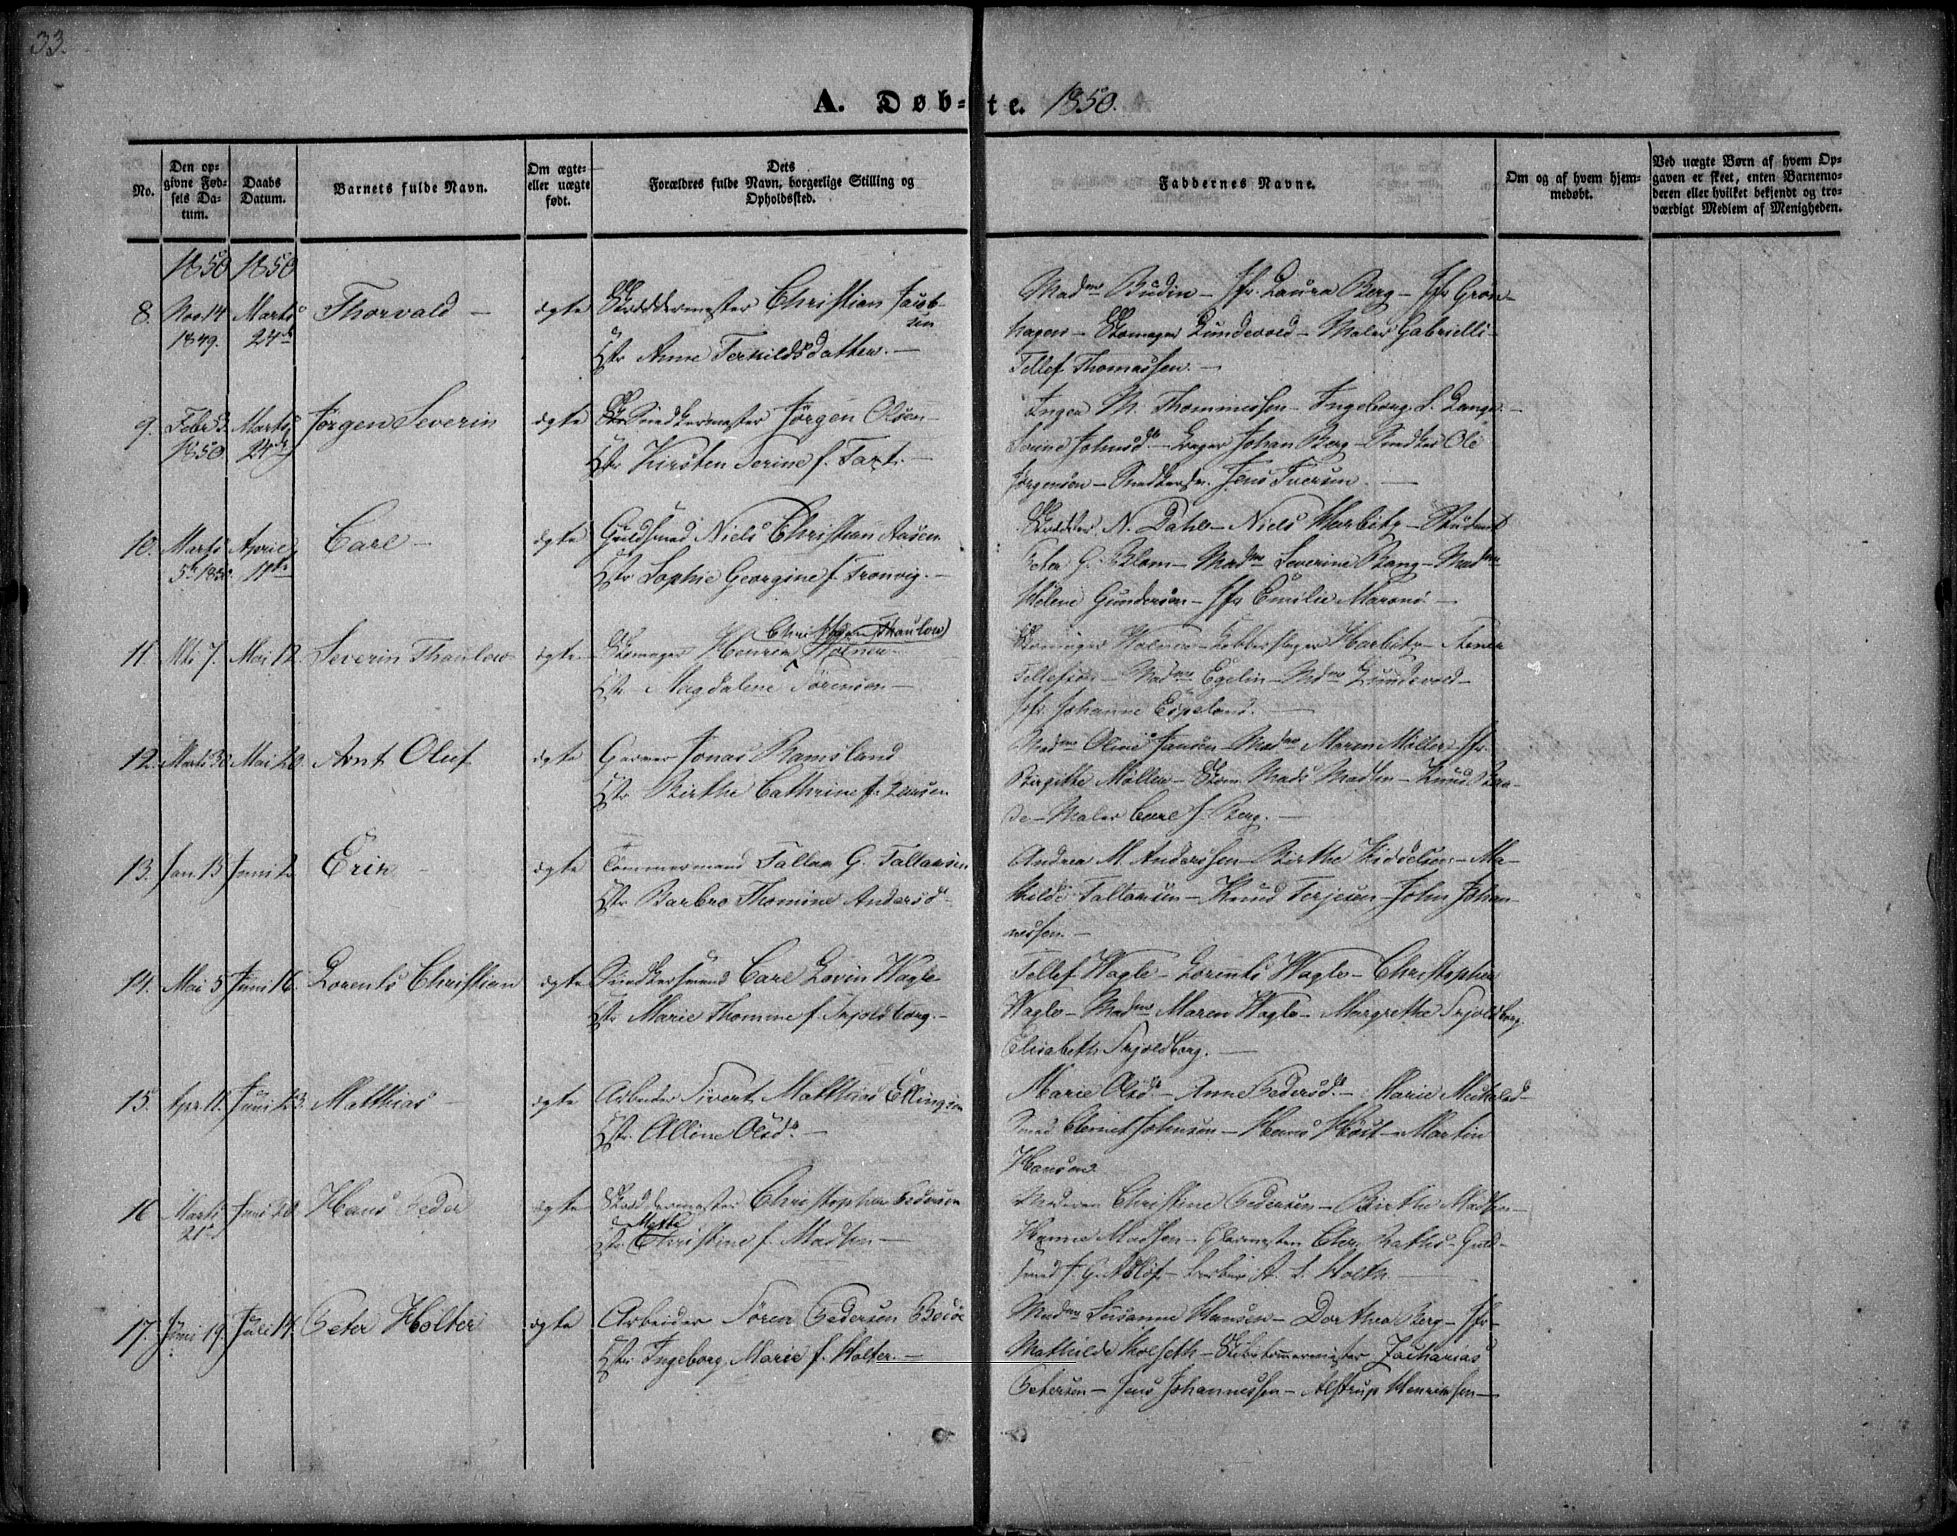 33.
A. Døb-te. 1850.
No.
Den opgivne Fødsels Datum.
Daabs Datum.
Barnets fulde Navn.
Om ægte- eller uægte født.
Dets Forældres fulde Navn, borgerlige Stilling og Opholdssted.
Faddernes Navne.
Om og af hvem hjemmedøbt.
Ved uægte Børn af hvem Opgaven er skeet, enten Barnemoderen eller hvilket bekjendt og troværdigt Medlem af Menigheden.
1850 1850
8. Nov. 14 1849. Marts 24de Thorvald – ægte Skræddermester Christian Jacobsen
Hstr Anne Terkildsdatter. –
Madme Budin – Jfr. Laura Berg – Jfr Gronhagen – Skomager Lundevold – Maler Gabrielli –
Tellef Thomassen. –
9. Febr 2. 1850. Marts 24de Jørgen Severin ægte Snedkermester Jørgen Olsen –
Hstr Kirsten Serine f. –
Inger M. Thommessen – Ingeborg S. Lange –
Johan Berg – Snedker Ole
Jørgensen – Jens Iversen. –
10. Marts 5te 1850 April 11te Carl – ægte Guldsmed Niels Christian Aasen
Hstr Sophie Georgine f. Tronvig. –
N. Dahl – Niels Harbitz – Student
Peter G. Blom – Madm Severine Bang – Madme
Helene Gundersen – Jfr Emilie –
11. Mts 7. Mai 12. Severin Thaulow ægte Skomager Henrik (Christian Thaulow) Holmer
Hstr Magdalene Sørensen –
Skomager Holmer – Harbitz –
Tellefsen – Madme Egelin – Mdme Lundevold –
Jfr. Johanne Espeland. –
12. Marts 30. Mai 20. Arnt Oluf ægte Garver Jonas Ramsland
Hstr Birthe Cathrine f. Larsen
Madme Oline Jansen – Madme Maren Møller – Jfr.
Birgitte Møller – Skom. Mads Madsen – Knud
Maler Carl J. Berg. –
13. Jan. 13 Juni 2. Erik – ægte Tømmermand Tallak G. Tallaksen
Hstr Barbro Thomine Andersd.
Andrea M. Anderssen – Birthe – Mathilde Tallaksen – Knud Terjesen – John Johannessen. –
14. Mai 5 Juni 16. Lorents Christian ægte Snedkersvend Carl Lovin Wagle
Hstr Marie Thomine f. Skjoldborg. –
Tellef Wagle – Lorents Wagle – Christopher
Wagle – Madme Maren Wagle – Margrethe Skjoldborg
Elisabeth Skjoldborg. –
15. Apr. 11. Juni 23. Matthias – ægte Arbeider Sivert Matthias Ellingsen
Hstr. Olsd. –
Marie Olsd. – Anne Pedersd. – Marie
Smed Johnsen – Hans Høst – Martin
Hansen
16 Marts 21de Juni 20. Hans Peder ægte Skræddermester Christopher Pedersen
Hstr. Mette Christine f. Madsen –
Moderen Christine Pedersen – Birthe Madsen –
Hanne Madsen – Glarmester Chr. – Guldsmed – A. S. Holth –
17. Juni 19. Juli 14. Peter Holter ægte Arbeider Søren Pedersen
Hstr Ingeborg Marie f. Holter. –
Madme Susanne Hansen – Dorthea Berg – Jfr.
Mathilde Kolseth – Zacharias
Petersen – Jens Johannessen – Alstrup Henriksen –